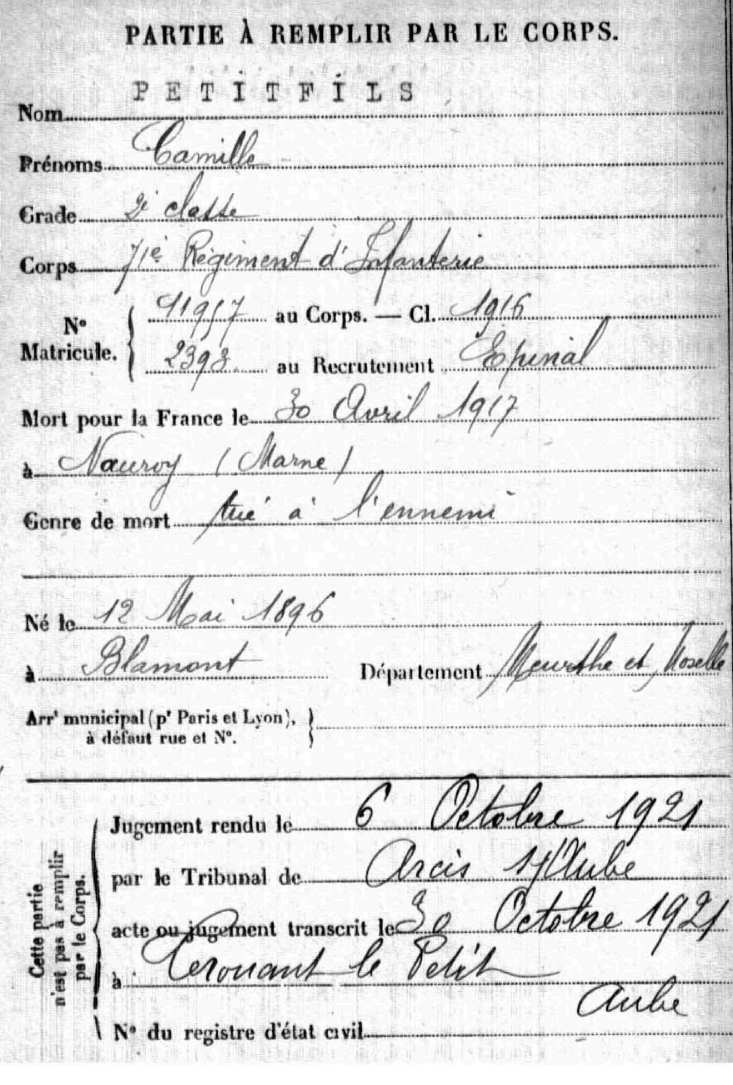 PARTIE À REMPLIR PAR LE CORPS.
Nom PETITFILS
Prénoms Camille
Grade 2e classe
Corps 71e Régiment d'Infanterie
N° Matricule. 11957 au Corps. — Cl. 1916
2393 au Recrutement Epinal
Mort pour la France le 30 Avril 1917
à Nauroy (Marne)
Genre de mort tué à l'ennemi
Né le 12 Mai 1896
à Blamont Département Meurthe et Moselle
Arrt municipal (pr Paris et Lyon),
à défaut rue et N°.
Cette partie n'est pas à remplir par le Corps.
Jugement rendu le 6 Octobre 1921
par le Tribunal de Arcis s/Aube
acte ou jugement transcrit le 30 Octobre 1921
à le Petit
Aube
N° du registre d'état civil